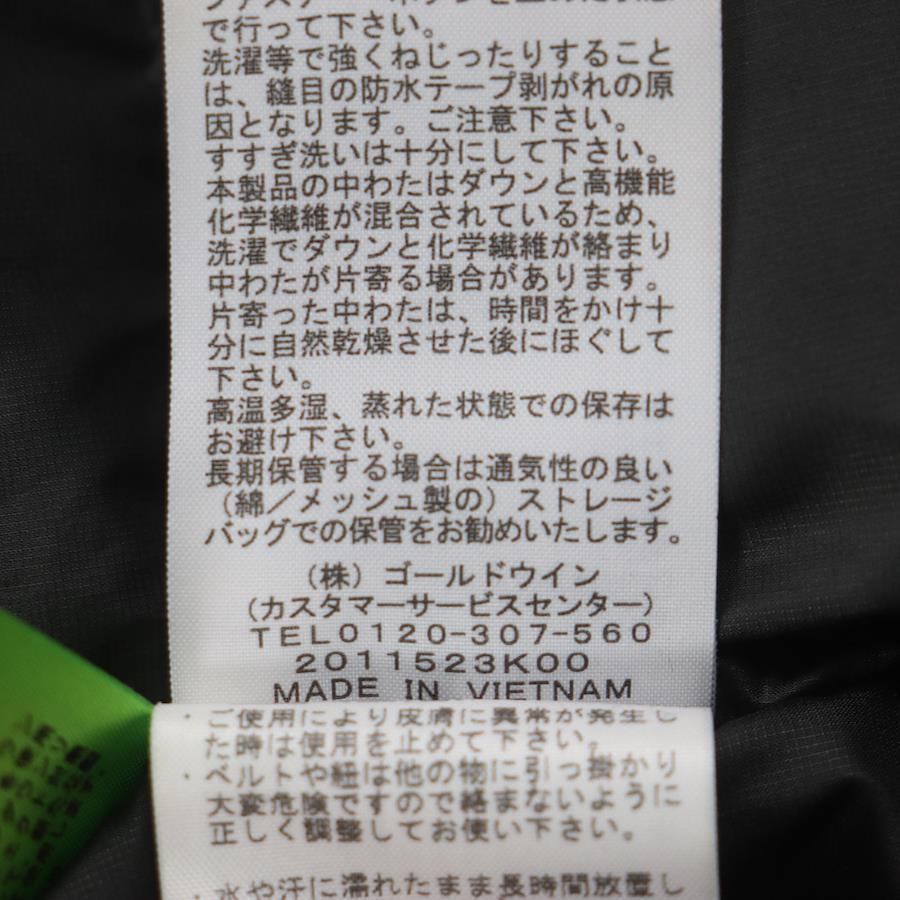 ファスナー・ボタンを止めた状態
で行って下さい。
洗濯等で強くねじったりすること
は、縫目の防水テープ剥がれの原
因となります。ご注意下さい。
すすぎ洗いは十分にして下さい。
本製品の中わたはダウンと高機能
化学繊維が混合されているため、
洗濯でダウンと化学繊維が絡まり
中わたが片寄る場合があります。
片寄った中わたは、時間をかけ十
分に自然乾燥させた後にほぐして
下さい。
高温多湿、蒸れた状態での保存は
お避け下さい。
長期保管する場合は通気性の良い
（綿／メッシュ製の）ストレージ
バッグでの保管をお勧めいたします。
（株）ゴールドウイン
（カスタマーサービスセンター）
TEL0120-307-560
2011523K00
MADE IN VIETNAM
・ご使用により皮膚に異常が発生し
た時は使用を止めて下さい。
・ベルトや紐は他の物に引っ掛かり
大変危険ですので絡まないように
正しく調整してお使い下さい。
・水や汗に濡れたまま長時間放置し